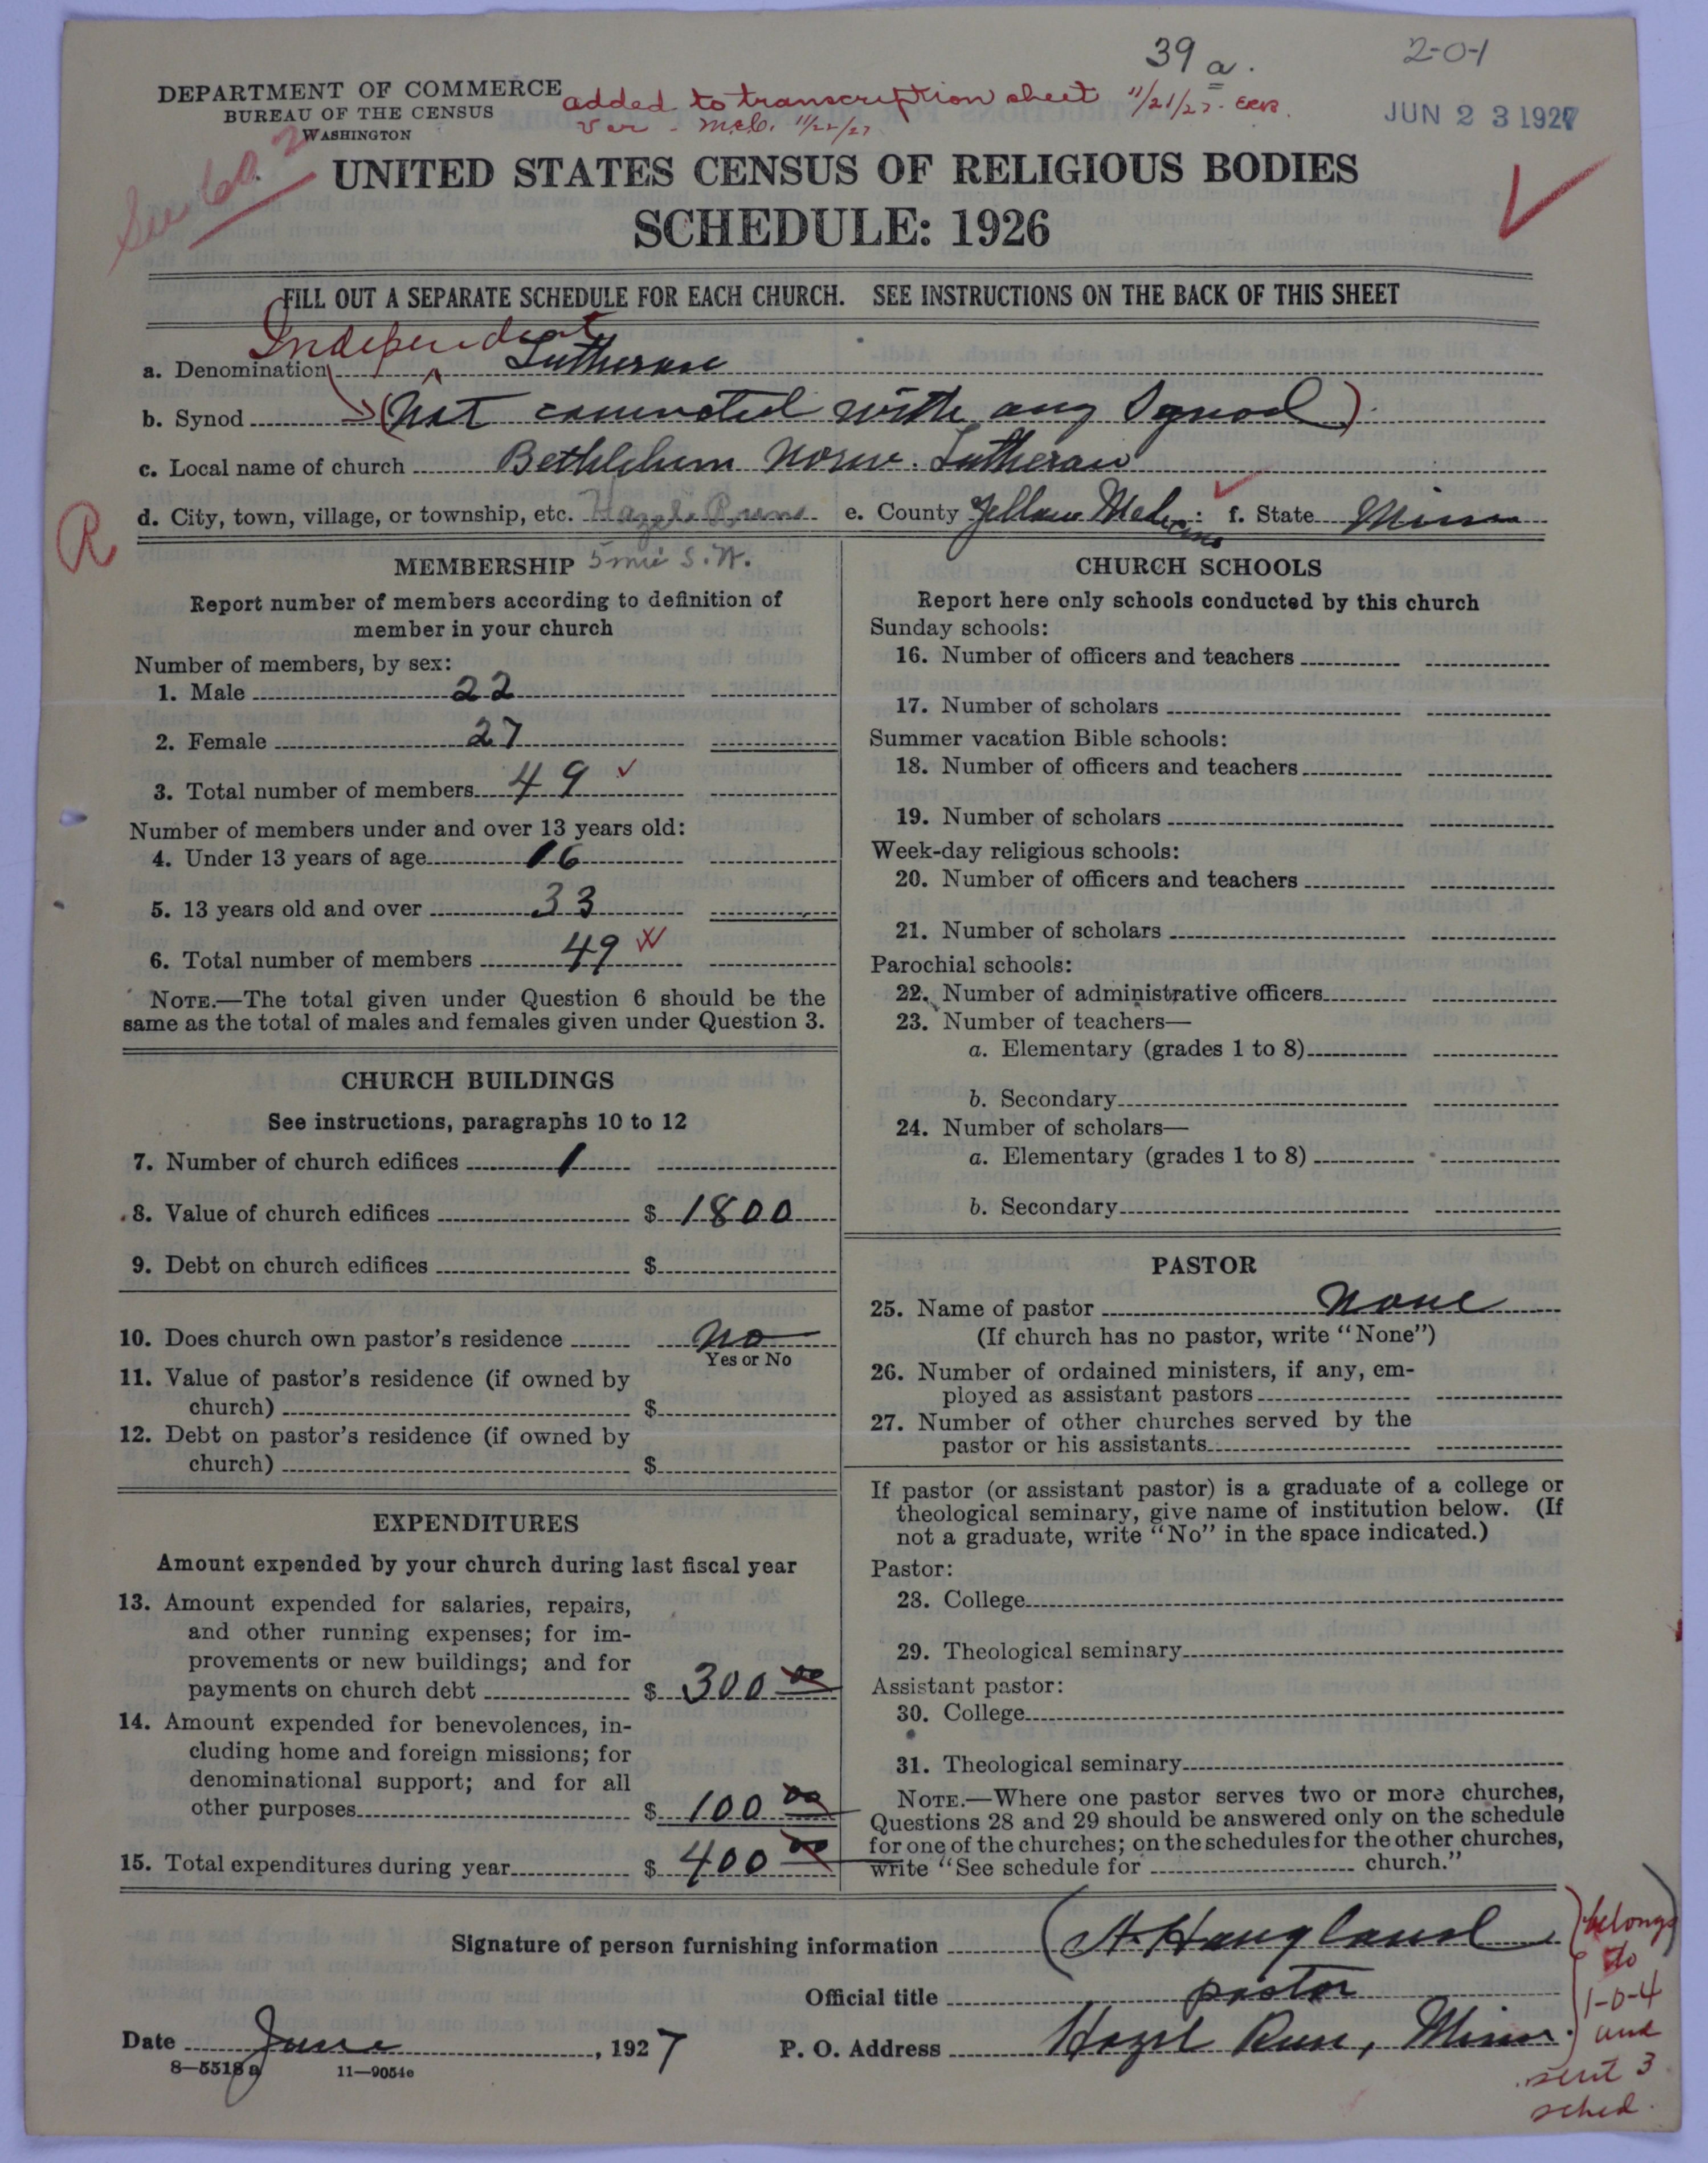 39 a.
2-0-1
DEPARTMENT OF COMMERCE
BUREAU OF THE CENSUS
WASHINGTON
added to transcription sheet 11/21/27. ERB
Ver. McC. 11/22/27
JUN 23 1927
See 60 2
UNITED STATES CENSUS OF RELIGIOUS BODIES
SCHEDULE: 1926
FILL OUT A SEPARATE SCHEDULE FOR EACH CHURCH. SEE INSTRUCTIONS ON THE BACK OF THIS SHEET
Independent
a. Denomination Lutheran
b. Synod (Not connected with any Synod)
c. Local name of church Bethlehem Norw. Lutheran
d. City, town, village, or township, etc. Hazel Run e. County Yellow Medicine f. State Minn
R
5 mi S.W.
MEMBERSHIP
Report number of members according to definition of
member in your church
Number of members, by sex:
1. Male 22
2. Female 27
3. Total number of members 49
Number of members under and over 13 years old:
4. Under 13 years of age 16
5. 13 years old and over 33
6. Total number of members 49
NOTE.—The total given under Question 6 should be the
same as the total of males and females given under Question 3.
CHURCH BUILDINGS
See instructions, paragraphs 10 to 12
7. Number of church edifices 1
8. Value of church edifices $ 1800
9. Debt on church edifices $
10. Does church own pastor's residence No
Yes or No
11. Value of pastor's residence (if owned by
church) $
12. Debt on pastor's residence (if owned by
church) $
EXPENDITURES
Amount expended by your church during last fiscal year
13. Amount expended for salaries, repairs,
and other running expenses; for im-
provements or new buildings; and for
payments on church debt $ 300 00
14. Amount expended for benevolences, in-
cluding home and foreign missions; for
denominational support; and for all
other purposes $ 100 00
15. Total expenditures during year $ 400 00
CHURCH SCHOOLS
Report here only schools conducted by this church
Sunday schools:
16. Number of officers and teachers
17. Number of scholars
Summer vacation Bible schools:
18. Number of officers and teachers
19. Number of scholars
Week-day religious schools:
20. Number of officers and teachers
21. Number of scholars
Parochial schools:
22. Number of administrative officers
23. Number of teachers—
a. Elementary (grades 1 to 8)
b. Secondary
24. Number of scholars—
a. Elementary (grades 1 to 8)
b. Secondary
PASTOR
25. Name of pastor None
(If church has no pastor, write "None")
26. Number of ordained ministers, if any, em-
ployed as assistant pastors
27. Number of other churches served by the
pastor or his assistants
If pastor (or assistant pastor) is a graduate of a college or
theological seminary, give name of institution below. (If
not a graduate, write "No" in the space indicated.)
Pastor:
28. College
29. Theological seminary
Assistant pastor:
30. College
31. Theological seminary
NOTE.—Where one pastor serves two or more churches,
Questions 28 and 29 should be answered only on the schedule
for one of the churches; on the schedules for the other churches,
write "See schedule for church."
Signature of person furnishing information (A. Haugland)
Official title pastor
Date June, 1927 P. O. Address Hazel Run, Minn.
8—5518 a 11—9054e
belongs
to
1-0-4
and
sent 3
sched.